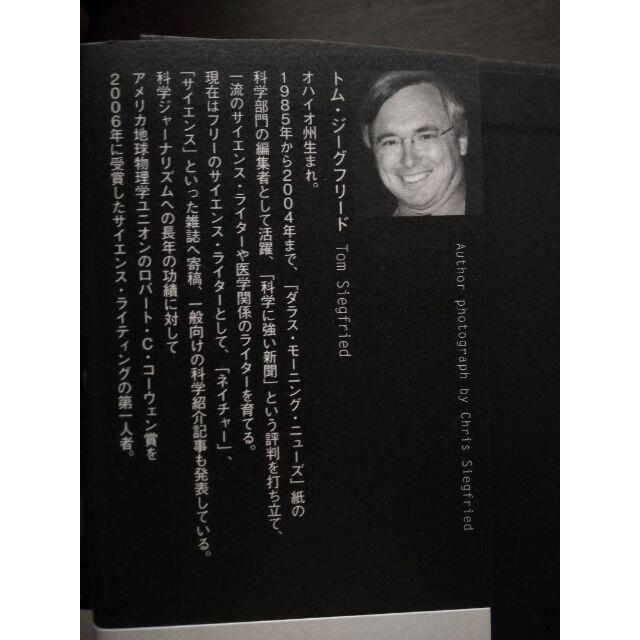 トム・ジーグフリード Tom Siegfried
オハイオ州生まれ。
1985年から2004年まで、「ダラス・モーニング・ニューズ」紙の
科学部門の編集者として活躍、「科学に強い新聞」という評判を打ち立て、
一流のサイエンス・ライターや医学関係のライターを育てる。
現在はフリーのサイエンス・ライターとして、「ネイチャー」、
「サイエンス」といった雑誌へ寄稿、一般向けの科学紹介記事も発表している。
科学ジャーナリズムへの長年の功績に対して
アメリカ地球物理学ユニオンのロバート・C・コーウェン賞を
2006年に受賞したサイエンス・ライティングの第一人者。
Author photograph by Chris Siegfried